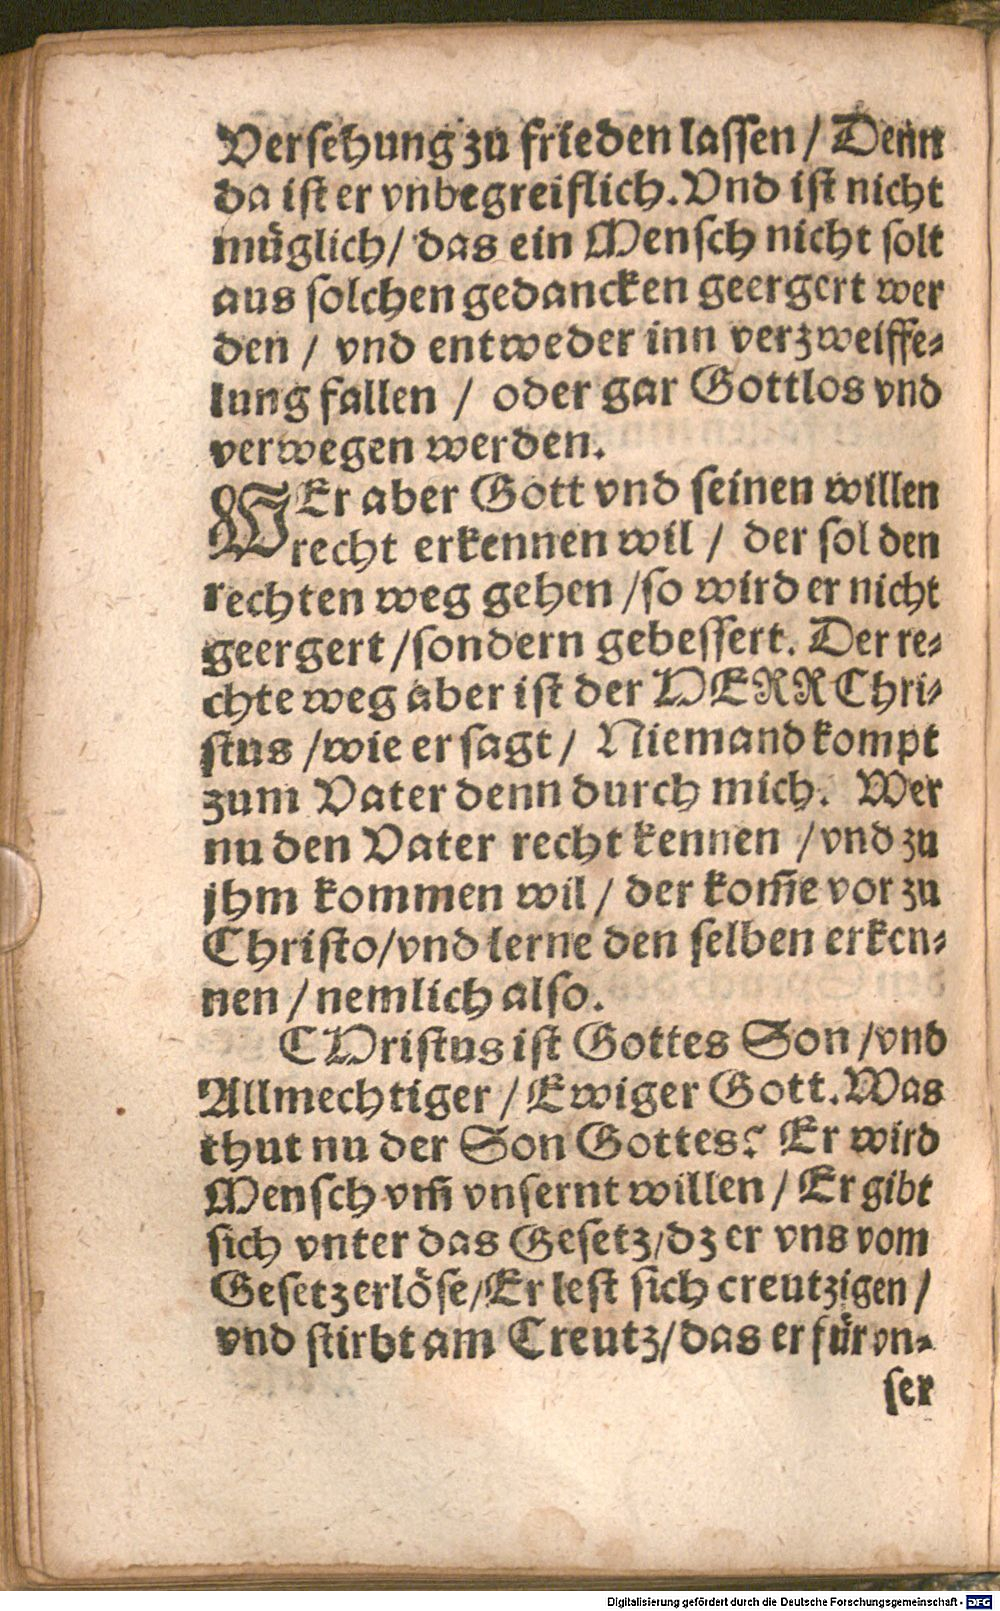 Versehung zu frieden lassen / Denn
da ist er vnbegreiflich. Vnd ist nicht
müglich / das ein Mensch nicht solt
aus solchen gedancken geergert wer
den / vnd entweder inn verzweiffe-
lung fallen / oder gar Gottlos vnd
verwegen werden.
WEr aber Gott vnd seinen willen
recht erkennen wil / der sol den
rechten weg gehen / so wird er nicht
geergert / sondern gebessert. Der re-
chte weg aber ist der HERR Chri-
stus / wie er sagt / Niemand kompt
zum Vater denn durch mich. Wer
nu den Vater recht kennen / vnd zu
jhm kommen wil / der kom̃e vor zu
Christo / vnd lerne den selben erken-
nen / nemlich also.
CHristus ist Gottes Son / vnd
Allmechtiger / Ewiger Gott. Was
thut nu der Son Gottes? Er wird
Mensch vm̃ vnsernt willen / Er gibt
sich vnter das Gesetz / dz er vns vom
Gesetz erlöse / Er lest sich creutzigen /
vnd stirbt am Creutz / das er für vn-
ser
Digitalisierung gefördert durch die Deutsche Forschungsgemeinschaft - DFG